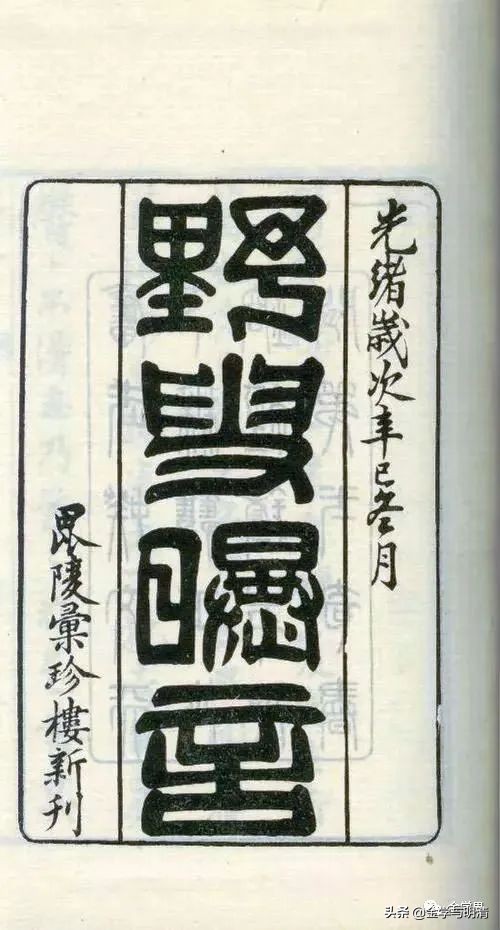 光緒歲次辛巳冬月
野叟曝言
毘陵彙珍樓新刊
头条 @金学与明清
金学界